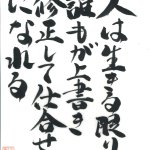 人は生きる限り
誰もが上書き
修正して仕合せ
になれる